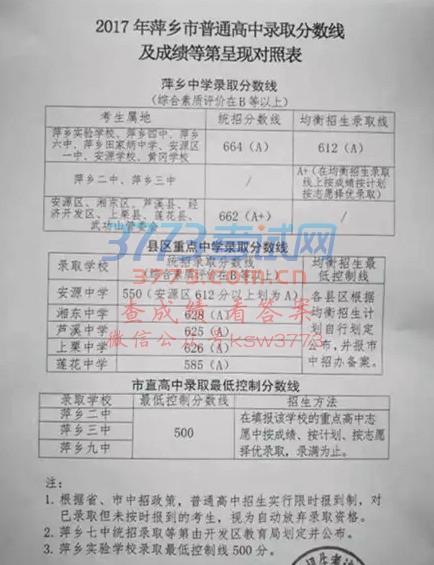 2017年萍乡市普通高中录取分数线
及成绩等第呈现对照表
萍乡中学录取分数线
(综合素质评价在B等以上)
考生属地 统招分数线 均衡招生录取线
萍乡实验学校、萍乡四中、萍乡
六中、萍乡田家炳中学、安源区
一中、安源学校、黄冈学校
664 (A) 612 (A)
萍乡二中、萍乡三中 /
A+(在均衡招生录取
线上按成绩按计划
按志愿择优录取)
安源区、湘东区、芦溪县、经
济开发区、上栗县、莲花县、
武功山管委会
662 (A+) /
县区重点中学录取分数线
录取学校 统招录取分数线
(综合素质评价在B等以上)
均衡招生最
低控制线
安源中学 550(安源区612分以上划为A)
湘东中学 628 (A)
芦溪中学 625 (A)
上栗中学 626 (A)
莲花中学 585 (A)
各县区根据
均衡招生计
划自行划定
公布,并报市
中招办备案。
市直高中录取最低控制分数线
录取学校 最低控制分数线 招生方法
萍乡二中
萍乡三中
萍乡九中
500
在填报该学校的重点高中志
愿中按成绩、按计划、按志愿
择优录取,录满为止。
注:
1. 根据省、市中招政策,普通高中招生实行限时报到制,对
已录取但未按时报到的考生,视为自动放弃录取资格。
2. 萍乡七中统招录取等第由开发区教育局划定并公布。
3. 萍乡实验学校录取最低控制线500分。
3773考试网
3773.com.cn
查成绩 看答案
微信公众号ksw3773